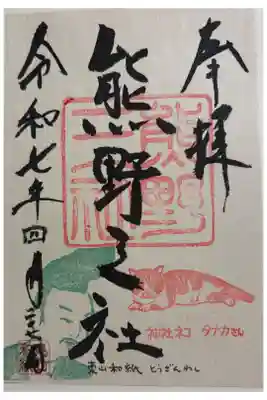 奉拝
熊野之社
令和七年四月二十七日
熊野
之社
神社ネコ タナカさん
東山和紙 とうざんわし